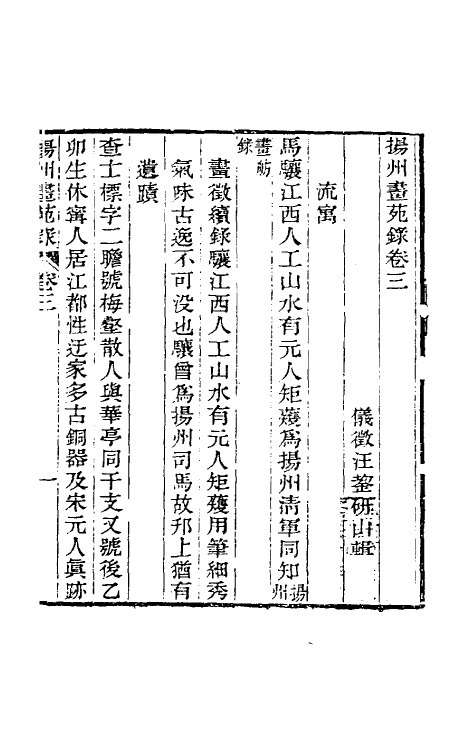 揚州畫苑錄卷三
儀徵汪鋆硏山輯
流寓
馬驤江西人工山水有元人矩矱爲揚州淸軍同知揚州
畫舫錄
畫徵續錄驤江西人工山水有元人矩矱用筆細秀
氣味古逸不可没也驤曾爲揚州司馬故邗上猶有
遺蹟
查士標字二瞻號梅壑散人與華亭同干支又號後乙
卯生休寧人居江都性迂家多古銅器及宋元人眞跡
揚州畫苑錄 卷三 一